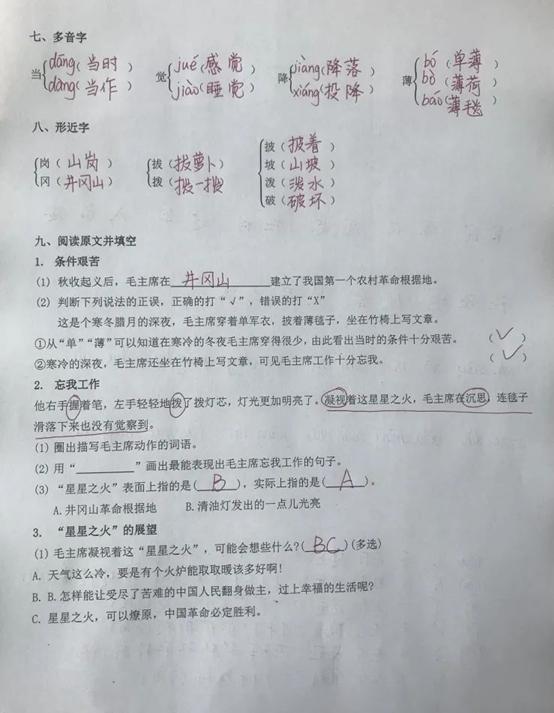 七、多音字
当{dāng(当时) 觉{jué(感觉) 降{jiàng(降落) 薄{bó(单薄)
dàng(当作) jiào(睡觉) xiáng(投降) bò(薄荷)
báo(薄毯)
八、形近字
{岗(山岗) {拔(拔萝卜) {披(披着)
冈(井冈山) 拨(拨一拨) 坡(山坡)
泼(泼水)
破(破坏)
九、阅读原文并填空
1. 条件艰苦
(1) 秋收起义后，毛主席在 井冈山 建立了我国第一个农村革命根据地。
(2) 判断下列说法的正误，正确的打“√”，错误的打“X”
这是个寒冬腊月的深夜，毛主席穿着单军衣，披着薄毯子，坐在竹椅上写文章。
①从“单”“薄”可以知道在寒冷的冬夜毛主席穿得很少，由此看出当时的条件十分艰苦。 (√)
②寒冷的深夜，毛主席还坐在竹椅上写文章，可见毛主席工作十分忘我。 (√)
2. 忘我工作
他右手握着笔，左手轻轻地拨了拨灯芯，灯光更加明亮了。凝视着这星星之火，毛主席在沉思，连毯子
滑落下来也没有觉察到。
(1) 圈出描写毛主席动作的词语。
(2) 用“________”画出最能表现出毛主席忘我工作的句子。
(3) “星星之火”表面上指的是( B )，实际上指的是( A )。
A.井冈山革命根据地 B.清油灯发出的一点儿光亮
3. “星星之火”的展望
(1) 毛主席凝视着这“星星之火”，可能会想些什么?( BC )(多选)
A. 天气这么冷，要是有个火炉能取取暖该多好啊!
B. B.怎样能让受尽了苦难的中国人民翻身做主，过上幸福的生活呢?
C. 星星之火，可以燎原，中国革命必定胜利。